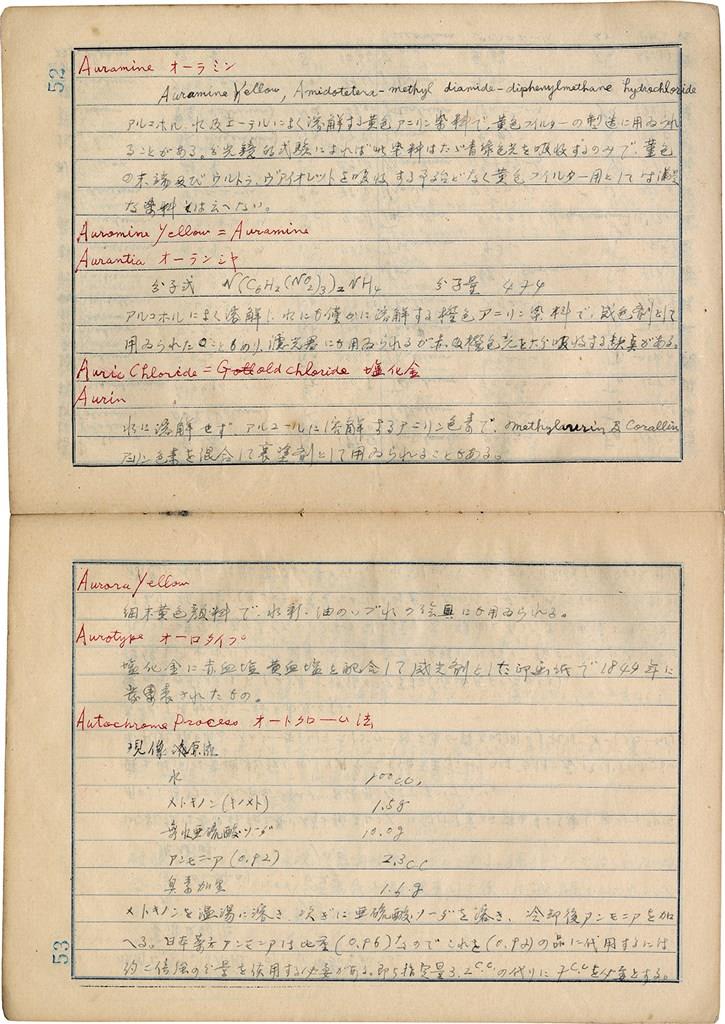 52
Auramine オーラミン
Auramine Yellow, Amidotetera-methyl diamide-diphenylmethane hydrochloride
アルコホル、水及エーテルによく溶解する黄色アニリン染料で、黄色フィルターの製造に用ゐられ
ることがある。分光鏡的試験によれば此染料はたゞ青緑色光を吸收するのみで、菫色
の末端及びウルトラ、ヴァイオレットを吸收する 黄色フィルター用としては
な染料とは云へない。
Auramine Yellow = Auramine
Aurantia オーランシヤ
分子式 N(C6H2(NO2)3)2NH4 分子量 474
アルコホルによく溶解し、水にも僅かに溶解する橙色アニリン染料で、感色剤として
用ゐられたこともあり、濾光器にも用ゐられるが赤及橙色光を大分吸收する缺点がある。
Auric Chloride = Gold chloride 塩化金
Aurin
水に溶解せず、アルコールに溶解するアニリン色素で、methylaurin 及 Corallin
アニリン色素を混合して裏塗剤として用ゐられることがある。
Aurora Yellow
細末黄色顔料で、水彩、油のいづれの絵具にも用ゐられる。
Aurotype オーロタイプ
塩化金に赤血塩 黄血塩を配合して感光剤とした印画紙で1844年に
発表されたもの。
Autochrome Process オートクローム法
現像液原液
水 100cc.
メトキノン(キノメト) 1.5g
無水亜硫酸ソーダ 10.0g
アンモニア(0.92) 2.3cc
臭素加里 1.6g
メトキノンを温湯に溶き、次ぎに亜硫酸ソーダを溶き、冷却後アンモニアを加
へる。日本薬方アンモニアは比重(0.96)なのでこれを(0.92)の品に代用するには
約二倍 の分量を使用する必要がある。即ち指定量3.2c.c.の代りに7c.cを必要とする。
53